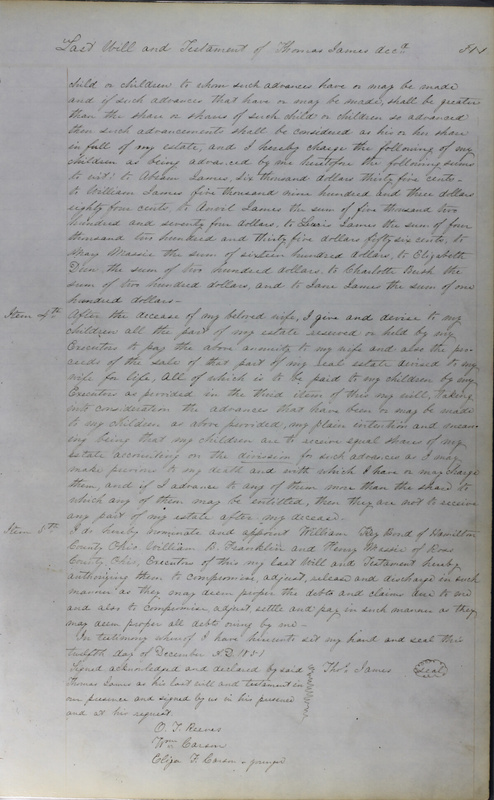 Last Will and Testament of Thomas James decd
child or children to whom such advances have or may be made
and if such advances that have or may be made, shall be greater
than the share or shares of such child or children so advanced
then such advancements shall be considered as his or her share
in full of my estate, and I hereby charge the following of my
children as being advanced by me heretofore the following sums
to wit: to Absum James, six thousand dollars thirty five cents-
to William James five thousand nine hundred and three dollars
eighty four cents, to James the sum of five thousand two
hundred and seventy four dollars. to Lewis James the sum of four
thousand two hundred and thirty five dollars fifty six cents, to
Mary Massie the sum of sixteen hundred dollars, to Elizabeth
Dun the sum of two hundred dollars, to Charlotte the
sum of two hundred dollars, and to Jane James the sum of one
hundred dollars-
Item 4th After the decease of my beloved wife, I give and devise to my
children all the part of my estate reserved or held by my
Executors to pay the above annuity to my wife and also the pro-
ceeds of the sale of that part of my real estate devised to my
wife for life, All of which is to be paid to my children by my
Executors as provided in the third item of this my will, taking
into consideration the advances that have been or may be made
to my children as above provided, my plain intention and mean-
ing being that my children are to receive equal shares of my
estate accounting on the division for such advances as I may
make previous to my death and with which I have or may charge
them, and if I advance to any of them more than the share to
which any of them may be entitled, then they are not to receive
any part of my estate after my decease.
Item 5th I do hereby nominate and appoint William Key Bond of Hamilton
County Ohio William B. Franklin and Henry Massie of Ross
County Ohio, Executors of this my last Will and Testament hereby
authorizing them to compromise, adjust, release and discharge in such
manner as they may deem proper the debts and claims due to me
and also to compromise adjust settle and pay in such manner as they
may deem proper all debts owing by me-
In testimony whereof I have hereunto set my hand and seal this
twelfth day of December A.D. 1851
Signed acknowledged and declared by said Thos James seal
Thomas James as his last will and testament in
our presence and signed by us in his presence
and at his request.
O. T. Reeves
Wm Carson
Eliza F. Carson